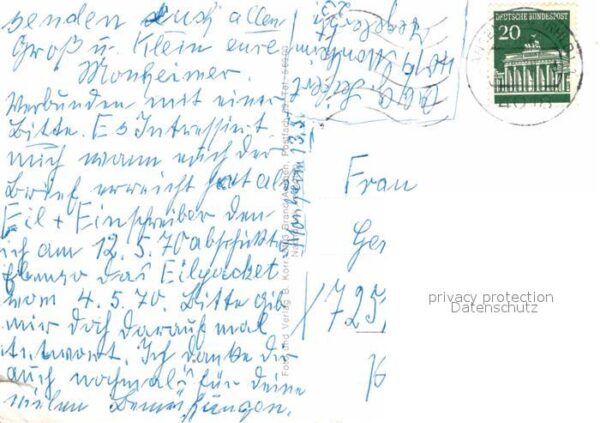 senden Euch allen
Groß u. Klein eure
Monheimer.
Verbunden mit einer
Bitte. Es Interessiert
mich wann euch der
Brief erreicht hat als
Eil + Einschreiber den
ich am 12.5.70 abschickte
Ebenso das Eilpacket
vom 4.5.70. Bitte gib
mir doch darauf mal
Antwort. Ich danke dir
auch nochmals für deine
vielen Bemühungen.
Foto und Verlag B. Korr
DEUTSCHE BUNDESPOST
20
Frau
Ger
725
privacy protection
Datenschutz